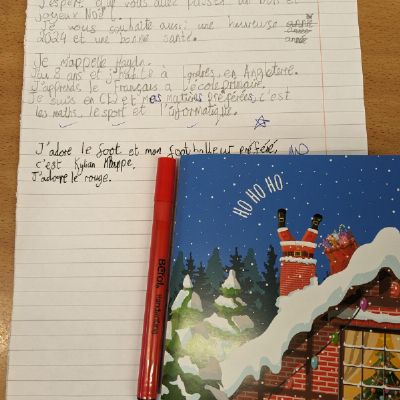 J'espère que vous allez passer un bon et
joyeux Noël.
Je vous souhaite aussi une heureuse année
2024 et une bonne santé. année
Je m'appelle Haydn.
J'ai 8 ans et j'habite à Londres, en Angleterre.
J'apprends le Français à l'école primaire.
Je suis en CE2 et mes matières préférées, c'est
les maths, le sport et l'informatique.
J'adore le foot et mon footballeur préféré,
c'est Kylian Mbappe.
J'adore le rouge.
HO HO HO
Berol Handwriting